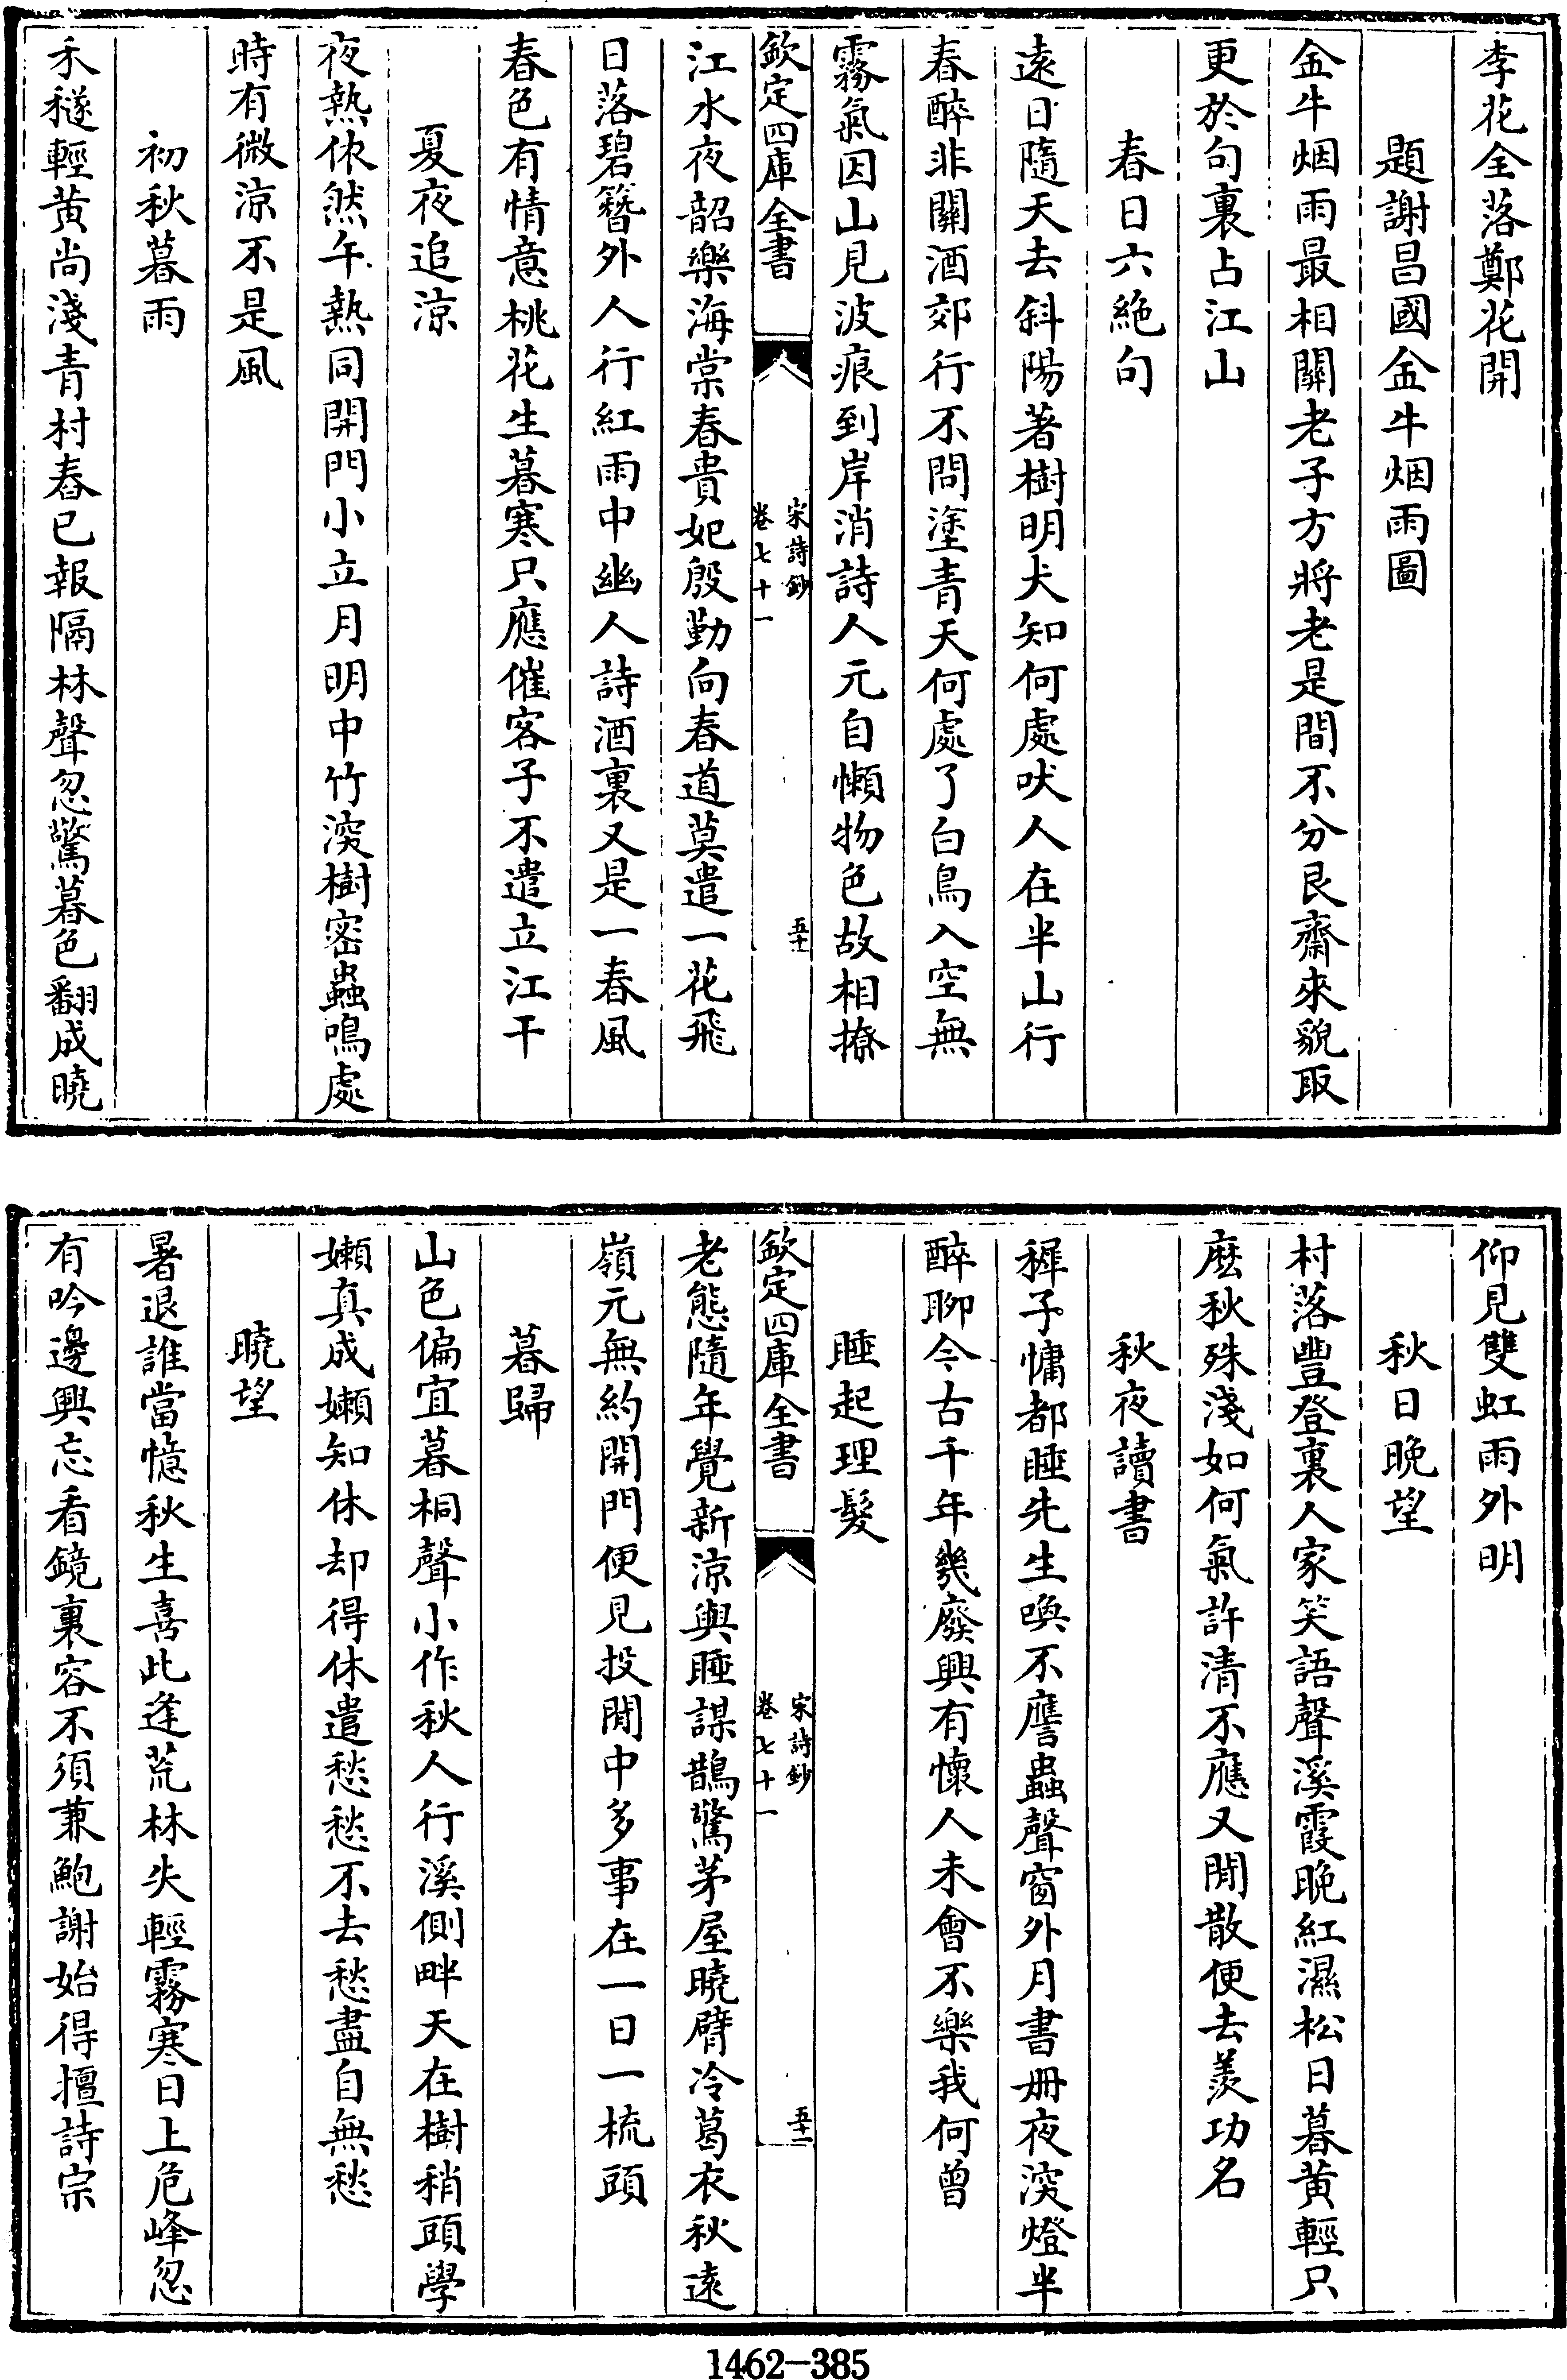 李花全落鄭花開
題謝昌國金牛烟雨圖
金牛烟雨最相關老子方將老是間不分艮齋來貌取
更於句裏占江山
春日六絶句
遠日隨天去斜陽著樹明犬知何處吠人在半山行
春醉非關酒郊行不問塗青天何處了白鳥入空無
霧氣因山見波痕到岸消詩人元自懶物色故相撩
欽定四庫全書
宋詩鈔
卷七十一
五十
江水夜韶樂海棠春貴妃殷勤向春道莫遣一花飛
日落碧簪外人行紅雨中幽人詩酒裏又是一春風
春色有情意桃花生暮寒只應催客子不遣立江干
夏夜追涼
夜熱依然午熱同開門小立月明中竹深樹密蟲鳴處
時有微涼不是風
初秋暮雨
禾穟輕黄尚淺青村舂已報隔林聲忽驚暮色翻成曉
仰見雙虹雨外明
秋日晚望
村落豐登裏人家笑語聲溪霞晚紅濕松日暮黄輕只
麽秋殊淺如何氣許清不應又閒散便去羨功名
秋夜讀書
穉子慵都睡先生喚不譍蟲聲窗外月書册夜深燈半
醉聊今古千年幾廢興有懷人未會不樂我何曾
睡起理髮
欽定四庫全書
宋詩鈔
卷七十一
五十一
老態隨年覺新涼與睡謀鵲驚茅屋曉臂冷葛衣秋遠
嶺元無約開門便見投閒中多事在一日一梳頭
暮歸
山色偏宜暮桐聲小作秋人行溪側畔天在樹稍頭學
嬾真成嬾知休却得休遣愁愁不去愁盡自無愁
曉望
暑退誰當憶秋生喜此逢荒林失輕霧寒日上危峰忽
有吟邊興忘看鏡裏容不須兼鮑謝始得擅詩宗
1462-385